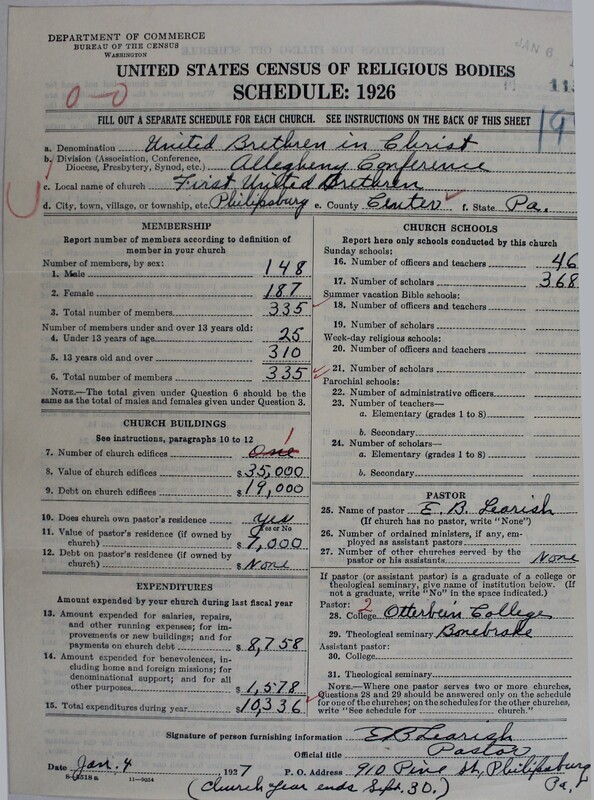 DEPARTMENT OF COMMERCE
BUREAU OF THE CENSUS
WASHINGTON
JAN 6
UNITED STATES CENSUS OF RELIGIOUS BODIES
SCHEDULE: 1926
0-0
FILL OUT A SEPARATE SCHEDULE FOR EACH CHURCH. SEE INSTRUCTIONS ON THE BACK OF THIS SHEET
a. Denomination United Brethren in Christ
b. Division (Association, Conference, Diocese, Presbytery, Synod, etc.) Allegheny Conference
c. Local name of church First United Brethren
d. City, town, village, or township, etc. Philipsburg e. County Center f. State Pa.
MEMBERSHIP
Report number of members according to definition of
member in your church
Number of members, by sex:
1. Male 148
2. Female 187
3. Total number of members 335
Number of members under and over 13 years old:
4. Under 13 years of age 25
5. 13 years old and over 310
6. Total number of members 335
NOTE.—The total given under Question 6 should be
same as the total of males and females given under Question 3.
CHURCH BUILDINGS
See instructions, paragraphs 10 to 12
7. Number of church edifices One 1
8. Value of church edifices $ 35,000
9. Debt on church edifices $ 19,000
10. Does church own pastor's residence yes
Yes or No
11. Value of pastor's residence (if owned by
church) $ 7,000
12. Debt on pastor's residence (if owned by
church) $ None
EXPENDITURES
Amount expended by your church during last fiscal year
13. Amount expended for salaries, repairs,
and other running expenses; for im-
provements or new buildings; and for
payments on church debt $ 8,758
14. Amount expended for benevolences, in-
cluding home and foreign missions; for
denominational support; and for all
other purposes $ 1,578
15. Total expenditures during year $ 10,336
CHURCH SCHOOLS
Report here only schools conducted by this church
Sunday schools:
16. Number of officers and teachers 46
17. Number of scholars 368
Summer vacation Bible schools:
18. Number of officers and teachers
19. Number of scholars
Week-day religious schools:
20. Number of officers and teachers
21. Number of scholars
Parochial schools:
22. Number of administrative officers
23. Number of teachers—
a. Elementary (grades 1 to 8)
b. Secondary
24. Number of scholars—
a. Elementary (grades 1 to 8)
b. Secondary
PASTOR
25. Name of pastor E. B. Learish
(If church has no pastor, write "None")
26. Number of ordained ministers, if any, em-
ployed as assistant pastors
27. Number of other churches served by the
pastor or his assistants None
If pastor (or assistant pastor) is a graduate of a college or
theological seminary, give name of institution below. (If
not a graduate, write "No" in the space indicated.)
Pastor: 2
28. College Otterbein College
29. Theological seminary Bonebrake
Assistant pastor:
30. College
31. Theological seminary
NOTE.—Where one pastor serves two or more churches,
Questions 28 and 29 should be answered only on the schedule
for one of the churches; on the schedules for the other churches,
write "See schedule for church."
Signature of person furnishing information E B Learish
Official title Pastor
Date Jan. 4 1927 P. O. Address 910 Pine St., Philipsburg
Pa.
11—9054
(Church year ends Sept. 30.)